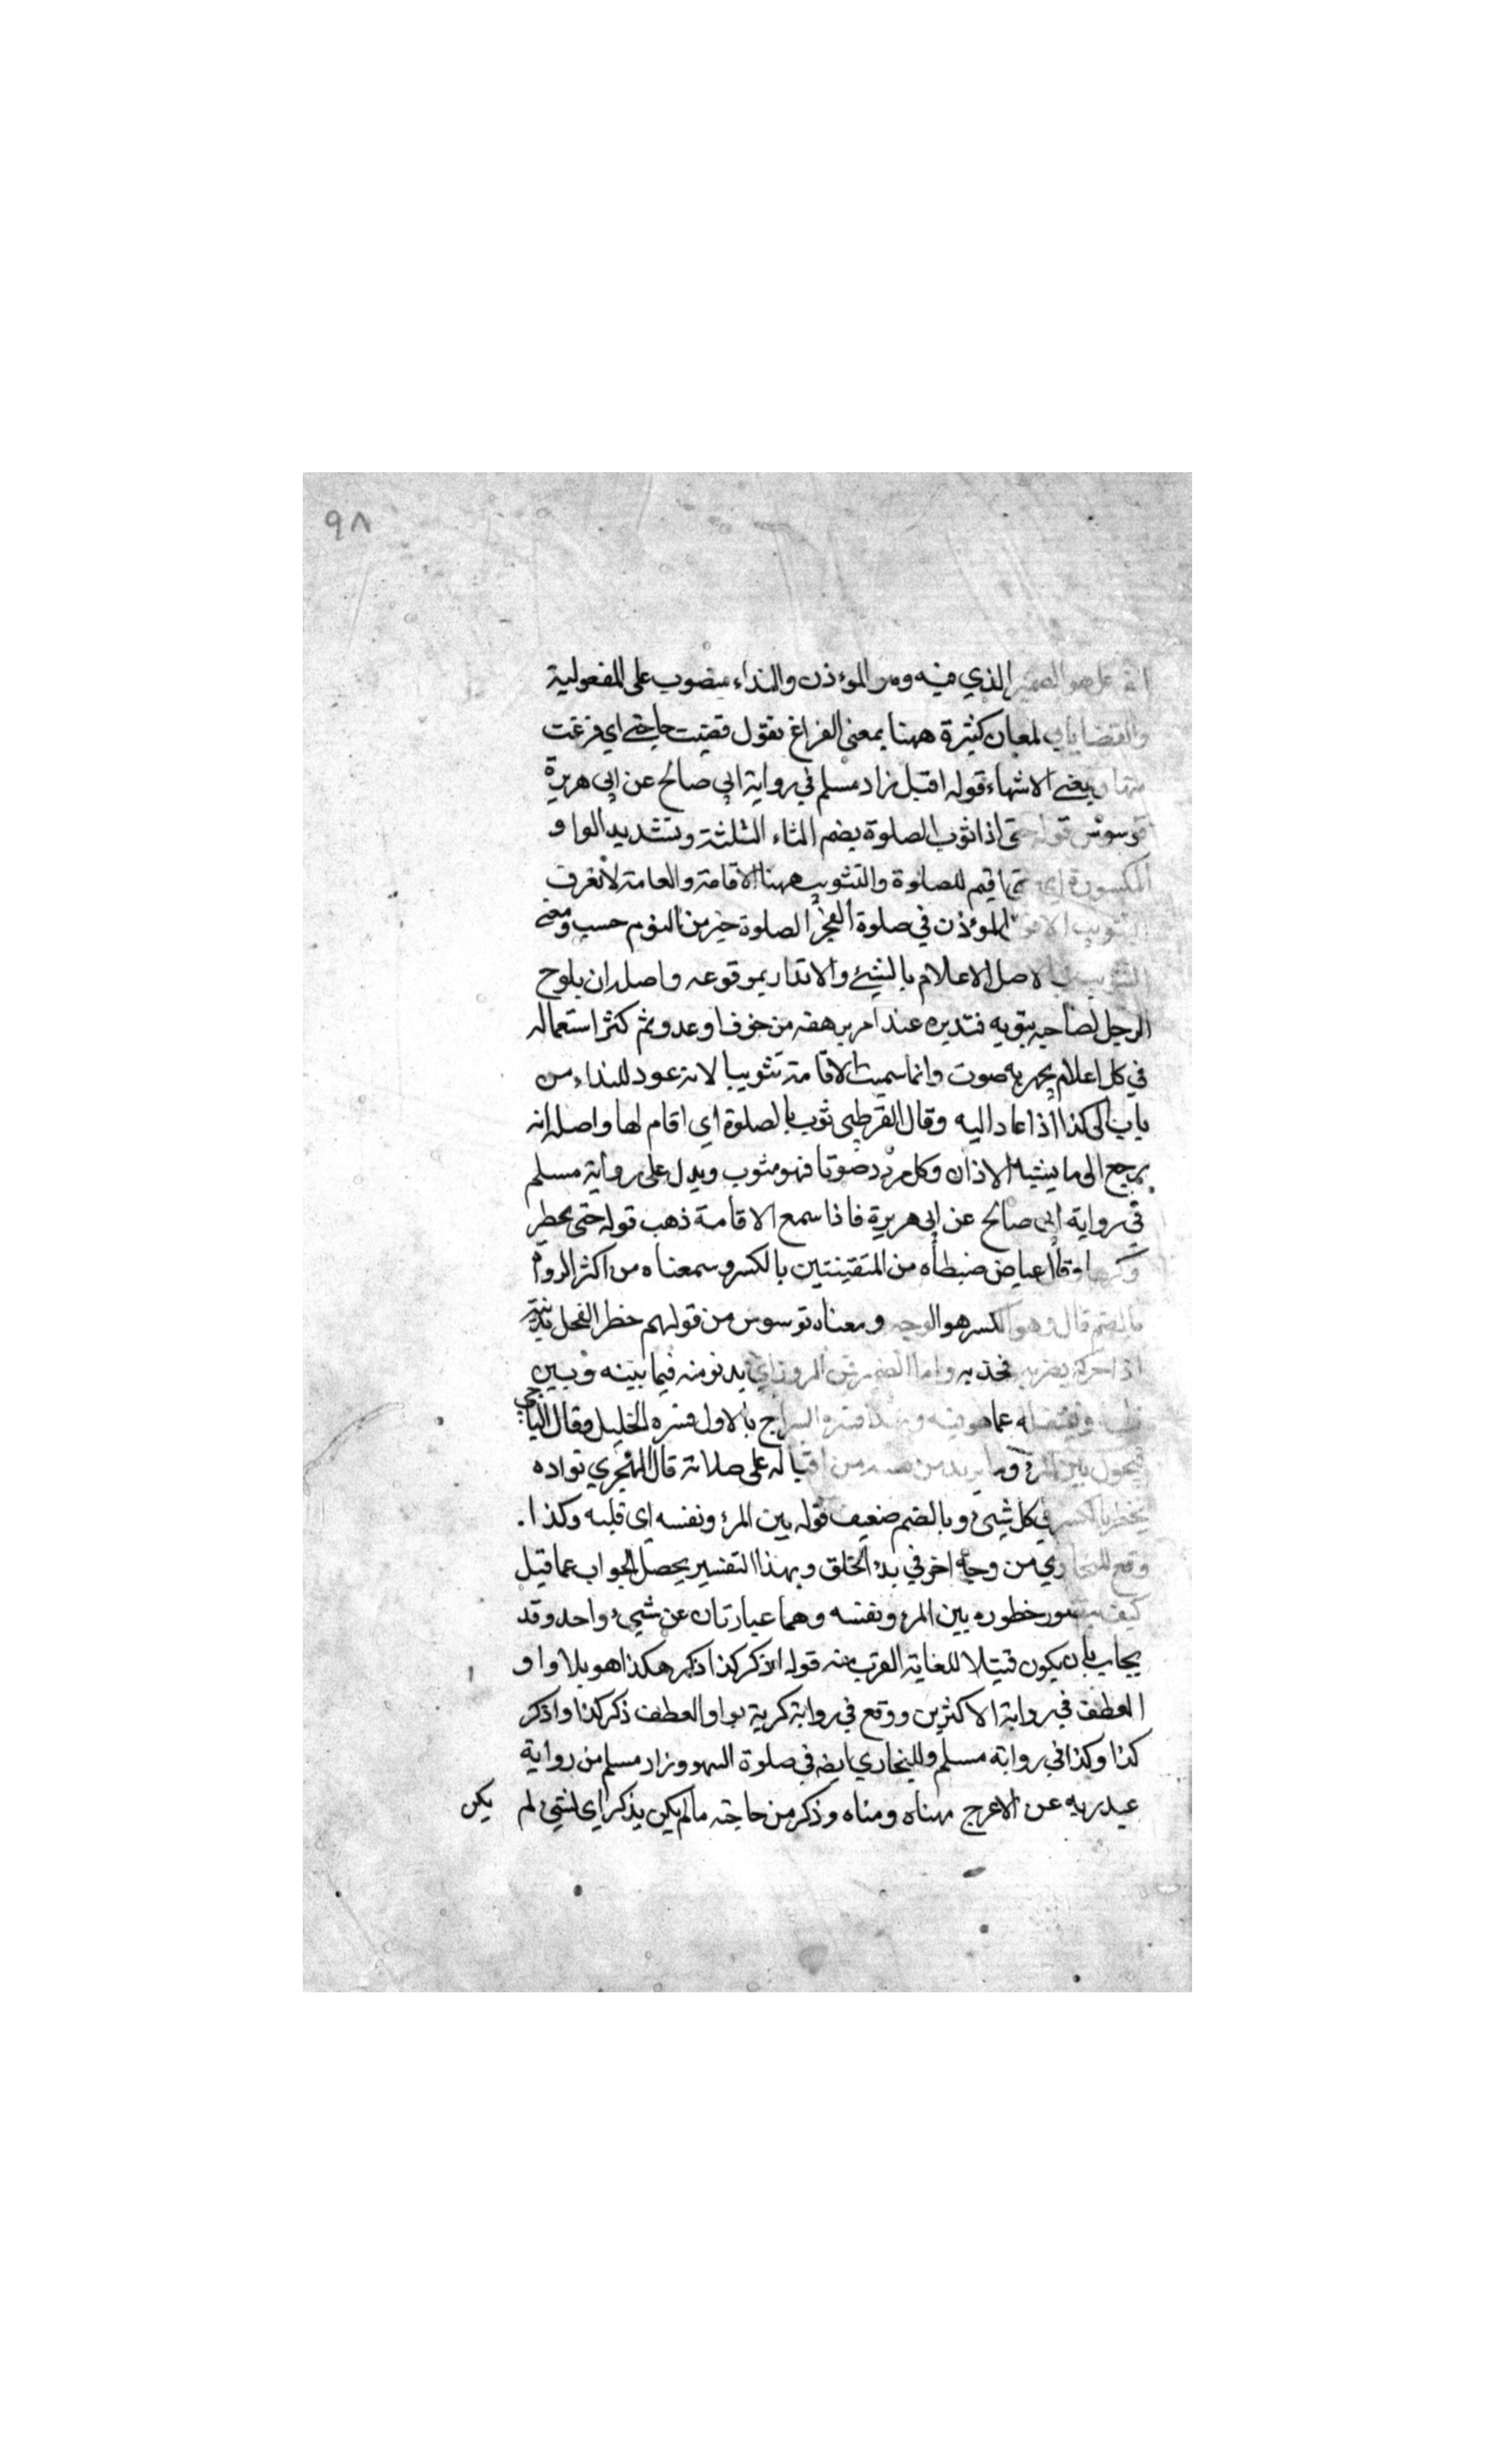 ٩٨
الذي فيه وهو المؤذن والنداء منصوب على المفعولية
والقضا ياتي لمعان كثيرة ههنا بمعنى الفراغ تقول قضيت حاجتي اي فرغت
منها او بمعنى الانتهاء قوله اقبل زاد مسلم في رواية ابي صالح عن ابي هريرة
فوسوس قوله حتى اذا ثوب الصلوة بضم الثاء الثلثة وتشديد الواو
المكسورة اي حتى اقيم للصلوة والتثويب ههنا الاقامة والعامة لا تعرف
التثويب الا قول المؤذن في صلوة الفجر الصلوة خير من النوم حسب ومعنى
التثويب في الاصل الاعلام بالشيئ والانذار بموقوعه واصله ان يلوح
الرجل لصاحبه بثوبه فتديره عند امر يرهقه من خوف او عدو ثم كثر استعماله
في كل اعلام يجهر به صوت وانما سميت الاقامة تثويبا لانه عود للنداء من
باب الى كذا اذا عاد اليه وقال القرطبي ثوب بالصلوة اي اقام لها واصله انه
يرجع الى ما يشبه الاذان وكل مردد صوتا فهو مثوب ويدل على رواية مسلم
في رواية ابي صالح عن ابي هريرة فاذا سمع الاقامة ذهب قوله حتى يخطر
وكرها وقال عياض ضبطناه من المتقينتين بالكسر وسمعناه من اكثر الرواة
بالضم قال وهو الكسر هو الوجه ومعناه توسوس من قولهم خطر الفحل بذنبه
اذا حركه يضرب فخذيه واما الضم من المرور اي يدنو منه فيما بينه وبين
فيشغله عما هو فيه وبهذا فسره السراج بالاول فسره الخليل وقال الباجي
فيحول بين المرء وما يريد من نفسه من اقباله على صلاته قال الهجري نواده
يخطر بالكسر في كل شيئ وبالضم ضعيف قوله بين المرء ونفسه اي قلبه وكذا.
وقع للبخاري من وجه اخر في بدء الخلق وبهذا التفسير يحصل الجواب عما قيل
كيف يتصور خطوره بين المرء ونفسه وهما عبارتان عن شيئ واحد وقد
يجاب بان يكون تمثيلا للغاية القرب منه قوله اذكر كذا اذكر هكذا هو بلا واو
العطف في رواية الاكثرين ووقع في رواية كريمة بواو العطف ذكر كذا واذكر
كذا وكذا في رواية مسلم وللبخاري ايضه في صلوة السهو وزاد مسلم من رواية
عبد ربه عن الاعرج فهناه ومناه وذكر من حاجته مالم يكن يذكر اي لشيئ لم يكن